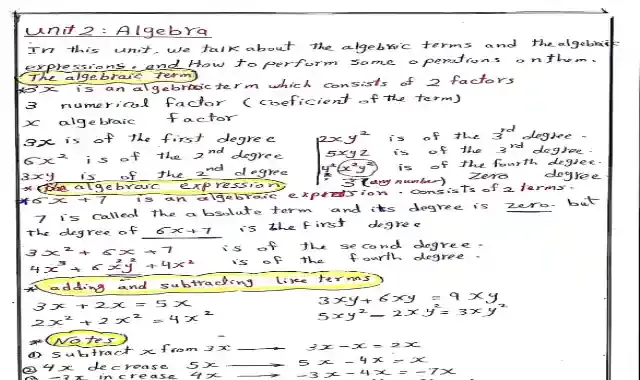 Unit 2 : Algebra
In this unit, we talk about the algebric terms and the algebric
expressions, and How to perform some operations on them.
The algebraic term
* 3x is an algebraic term which consists of 2 factors
3 numerical factor (coeficient of the term)
x algebraic factor
3x is of the first degree
6x² is of the 2nd degree
3xy is of the 2nd degree
2xy² is of the 3rd degree.
5xyz is of the 3rd degree.
x²y² is of the fourth degree.
3 (any number) zero degree
* The algebraic expression
* 6x + 7 is an algebraic expression. consists of 2 terms.
7 is called the absolute term and its degree is zero. but
the degree of 6x+7 is the first degree
3x² + 6x + 7 is of the second degree.
4x³ + 6x²y² + 4x² is of the fourth degree.
* adding and subtracting like terms
3x + 2x = 5x
2x² + 2x² = 4x²
3xy + 6xy = 9xy
5xy² - 2xy² = 3xy²
* Notes
① Subtract x from 3x → 3x - x = 2x
② 4x decrease 5x → 5x - 4x = x
-3x increase 4x → -3x - 4x = -7x